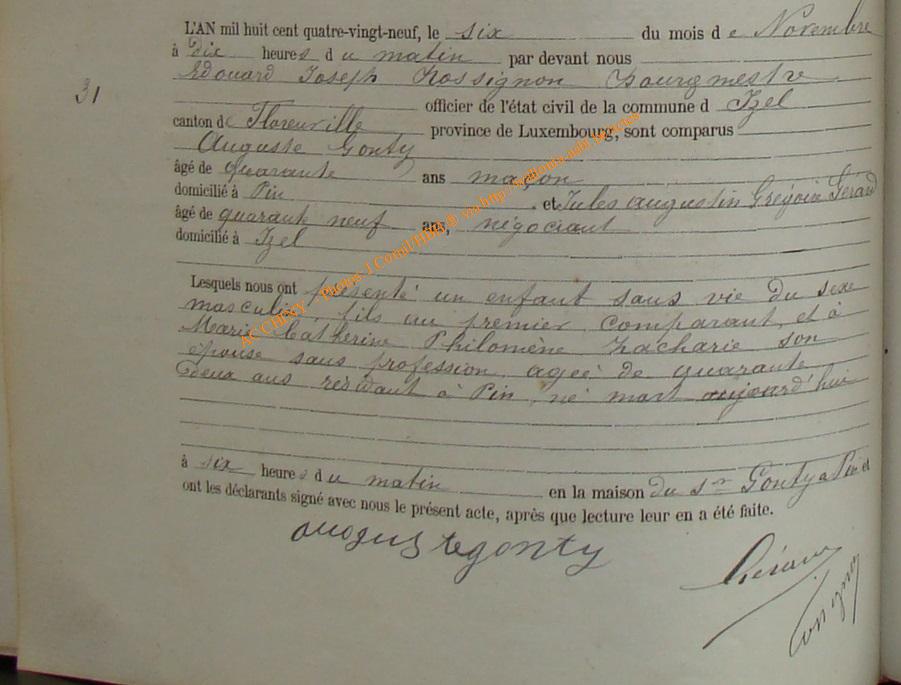 L'AN mil huit cent quatre-vingt-neuf, le six du mois de Novembre
à Dix heures du matin par devant nous
Edouard Joseph Rossignon Bourgmestre
31
officier de l'état civil de la commune d Izel
canton de Florenville province de Luxembourg, sont comparus
Auguste Gonty
âgé de quarante ans maçon
domicilié à Pin et Jules Augustin Grégoire Gérard
âgé de quarante neuf ans, négociant
domicilié à Izel
Lesquels nous ont présenté un enfant sans vie du sexe
masculin, fils du premier comparant, et à
Marie Catherine Philomène Zacharie son
épouse sans profession, agée de quarante
deux ans résidant à Pin, né mort aujourd'hui
à six heures du matin en la maison du sr Gonty à Pin et
ont les déclarants signé avec nous le présent acte, après que lecture leur en a été faite.
auguste gonty
Gérard
Rossignon